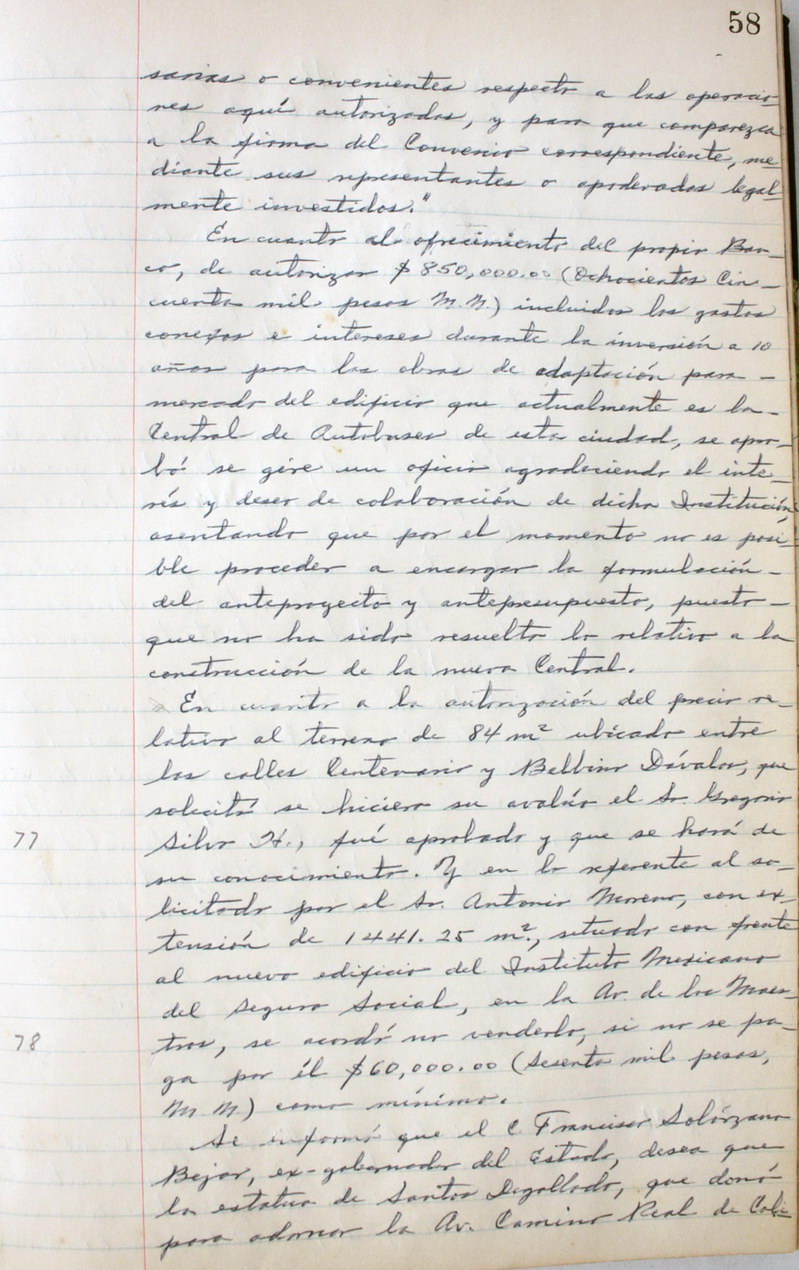 58
sarias o convenientes respecto a las operacio-
nes aquí autorizadas, y para que comparezca
a la firma del Convenio correspondiente, me-
diante sus representantes o apoderados legal-
mente investidos."
En cuanto al ofrecimiento del propio Ban-
co, de autorizar $850,000.00 (Ochocientos Cin-
cuenta mil pesos M.N.) incluidos los gastos
conexos e intereses durante la inversión a 10
años para las obras de adaptación para -
mercado del edificio que actualmente es la -
Central de Autobuses de esta ciudad, se apro-
bó se gire un oficio agradeciendo el inte-
rés y deseo de colaboración de dicha Institución
asentando que por el momento no es posi-
ble proceder a encargar la formulación -
del anteproyecto y antepresupuesto, puesto -
que no ha sido resuelto lo relativo a la
construcción de la nueva Central.
En cuanto a la autorización del precio re-
lativo al terreno de 84 m² ubicado entre
las calles Centenario y Balbino Dávalos, que
solicitó se hiciera su avalúo el Sr. Gregorio
77
Silva H., fué aprobado y que se hará de
su conocimiento. Y en lo referente al so-
licitado por el Sr. Antonio Moreno, con ex-
tensión de 1441.25 m²., situado con frente
al nuevo edificio del Instituto Mexicano
del Seguro Social, en la Av. de los Maes-
78
tros, se acordó no venderlo, si no se pa-
ga por él $60,000.00 (Sesenta mil pesos,
M.N.) como mínimo.
Se informó que el C. Francisco Solórzano
Bejar, ex-gobernador del Estado, desea que
la estatua de Santos Degollado, que donó
para adornar la Av. Camino Real de Coli-